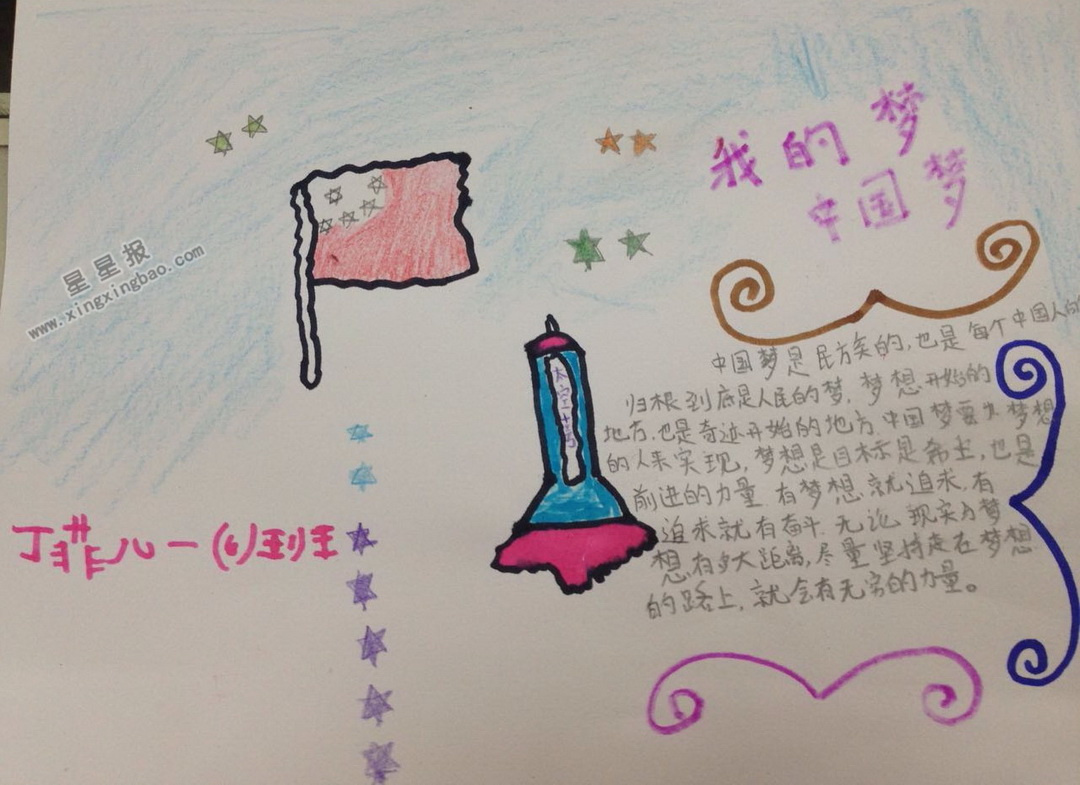 我的梦
中国梦
星星报
www.xingxingbao.com
中国梦是民族的,也是每个中国人的
归根到底是人民的梦.梦想开始的
地方.也是奇迹开始的地方.中国梦要为梦想
的人来实现,梦想是目标是希望,也是
前进的力量 有梦想就追求.有
追求就有奋斗.无论现实与梦
想有多大距离,尽量坚持走在梦想
的路上,就会有无穷的力量。
太空十号
丁菲儿一(6)班